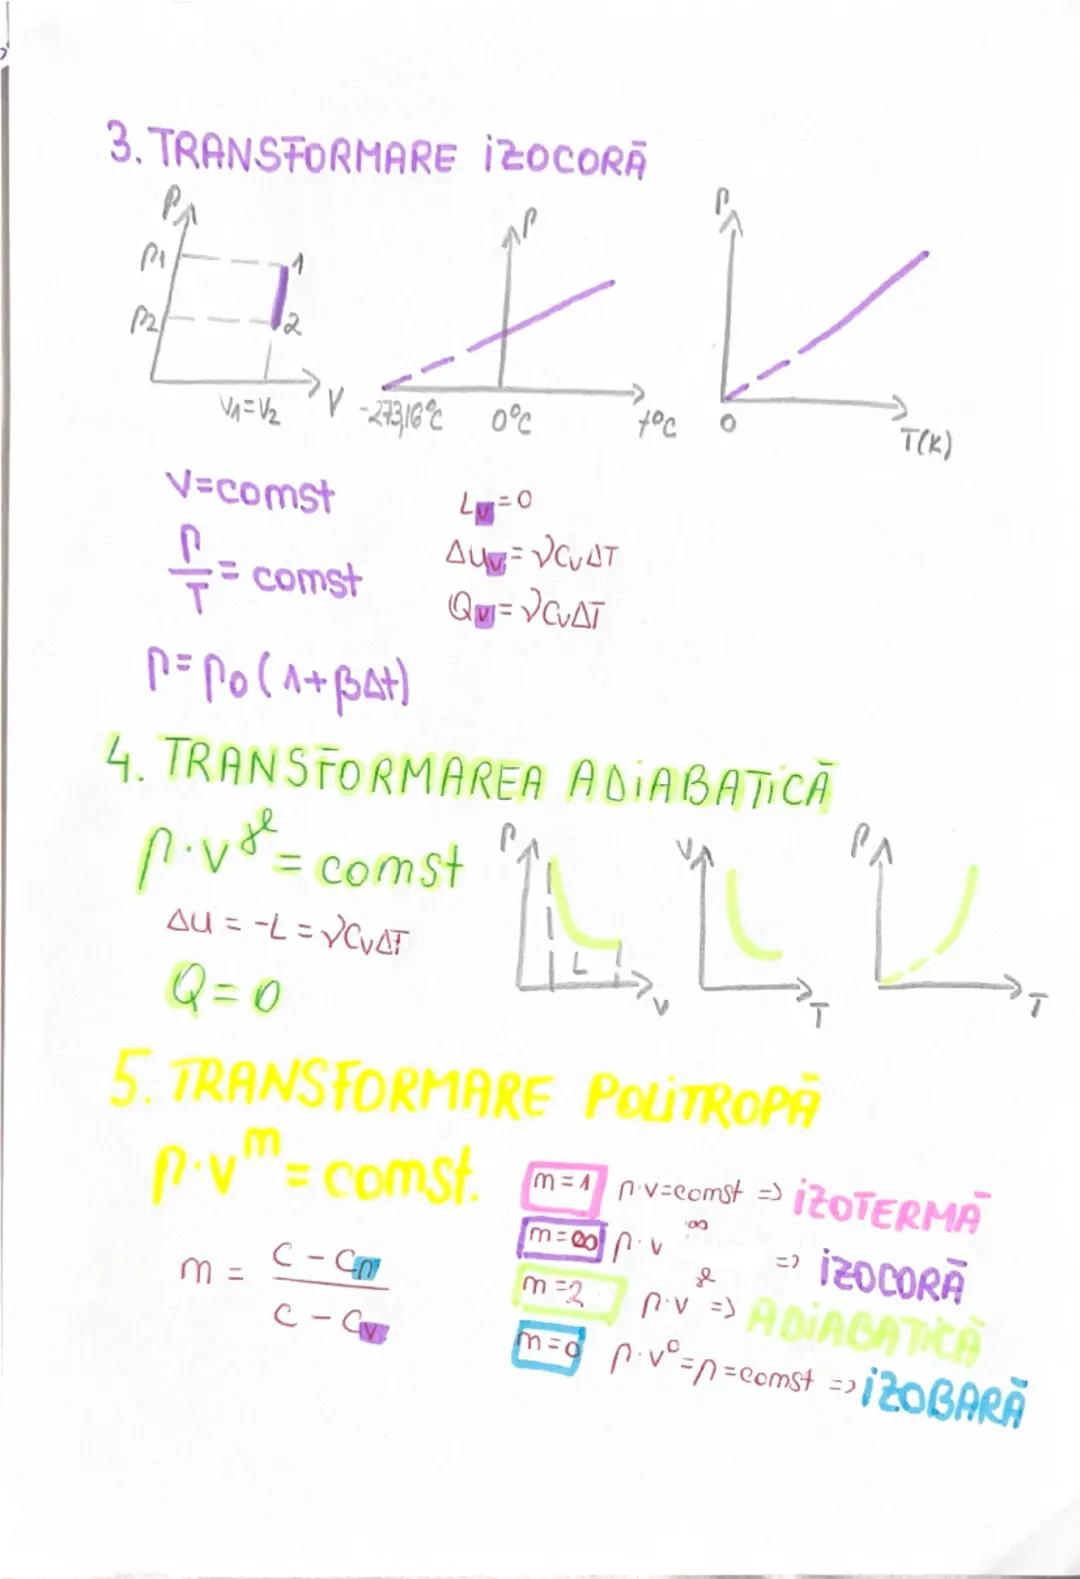 3. TRANSFORMARE iZOCORĂ
P
P1
1
P2
2
V1=V2
V
P
-273,16°C
0°C
t°C
P
0
T(K)
V=const
P/T = const
p=p0(1+βΔt)
Lv=0
ΔUv=νCvΔT
Qv=νCvΔT
4. TRANSFORMAREA ADiABATiCĂ
p·V^γ = const
ΔU = -L = νCvΔT
Q=0
P
L
V
V
T
P
T
5. TRANSFORMARE POLiTROPĂ
p·V^n = const.
n = (C - Cp)/(C - Cv)
n=1 p·V=const => iZOTERMĂ
n=∞ p·V^∞ => iZOCORĂ
n=γ p·V^γ => ADiABATiCĂ
n=0 p·V^0=p=const => iZOBARĂ